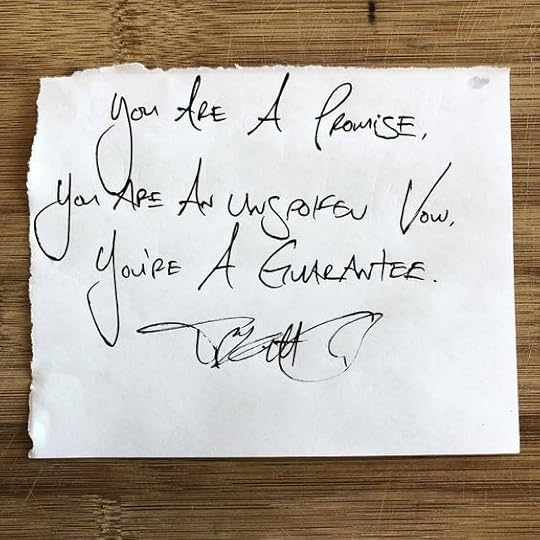 You Are A Promise,
You Are An Unspoken Vow.
You're A Guarantee.